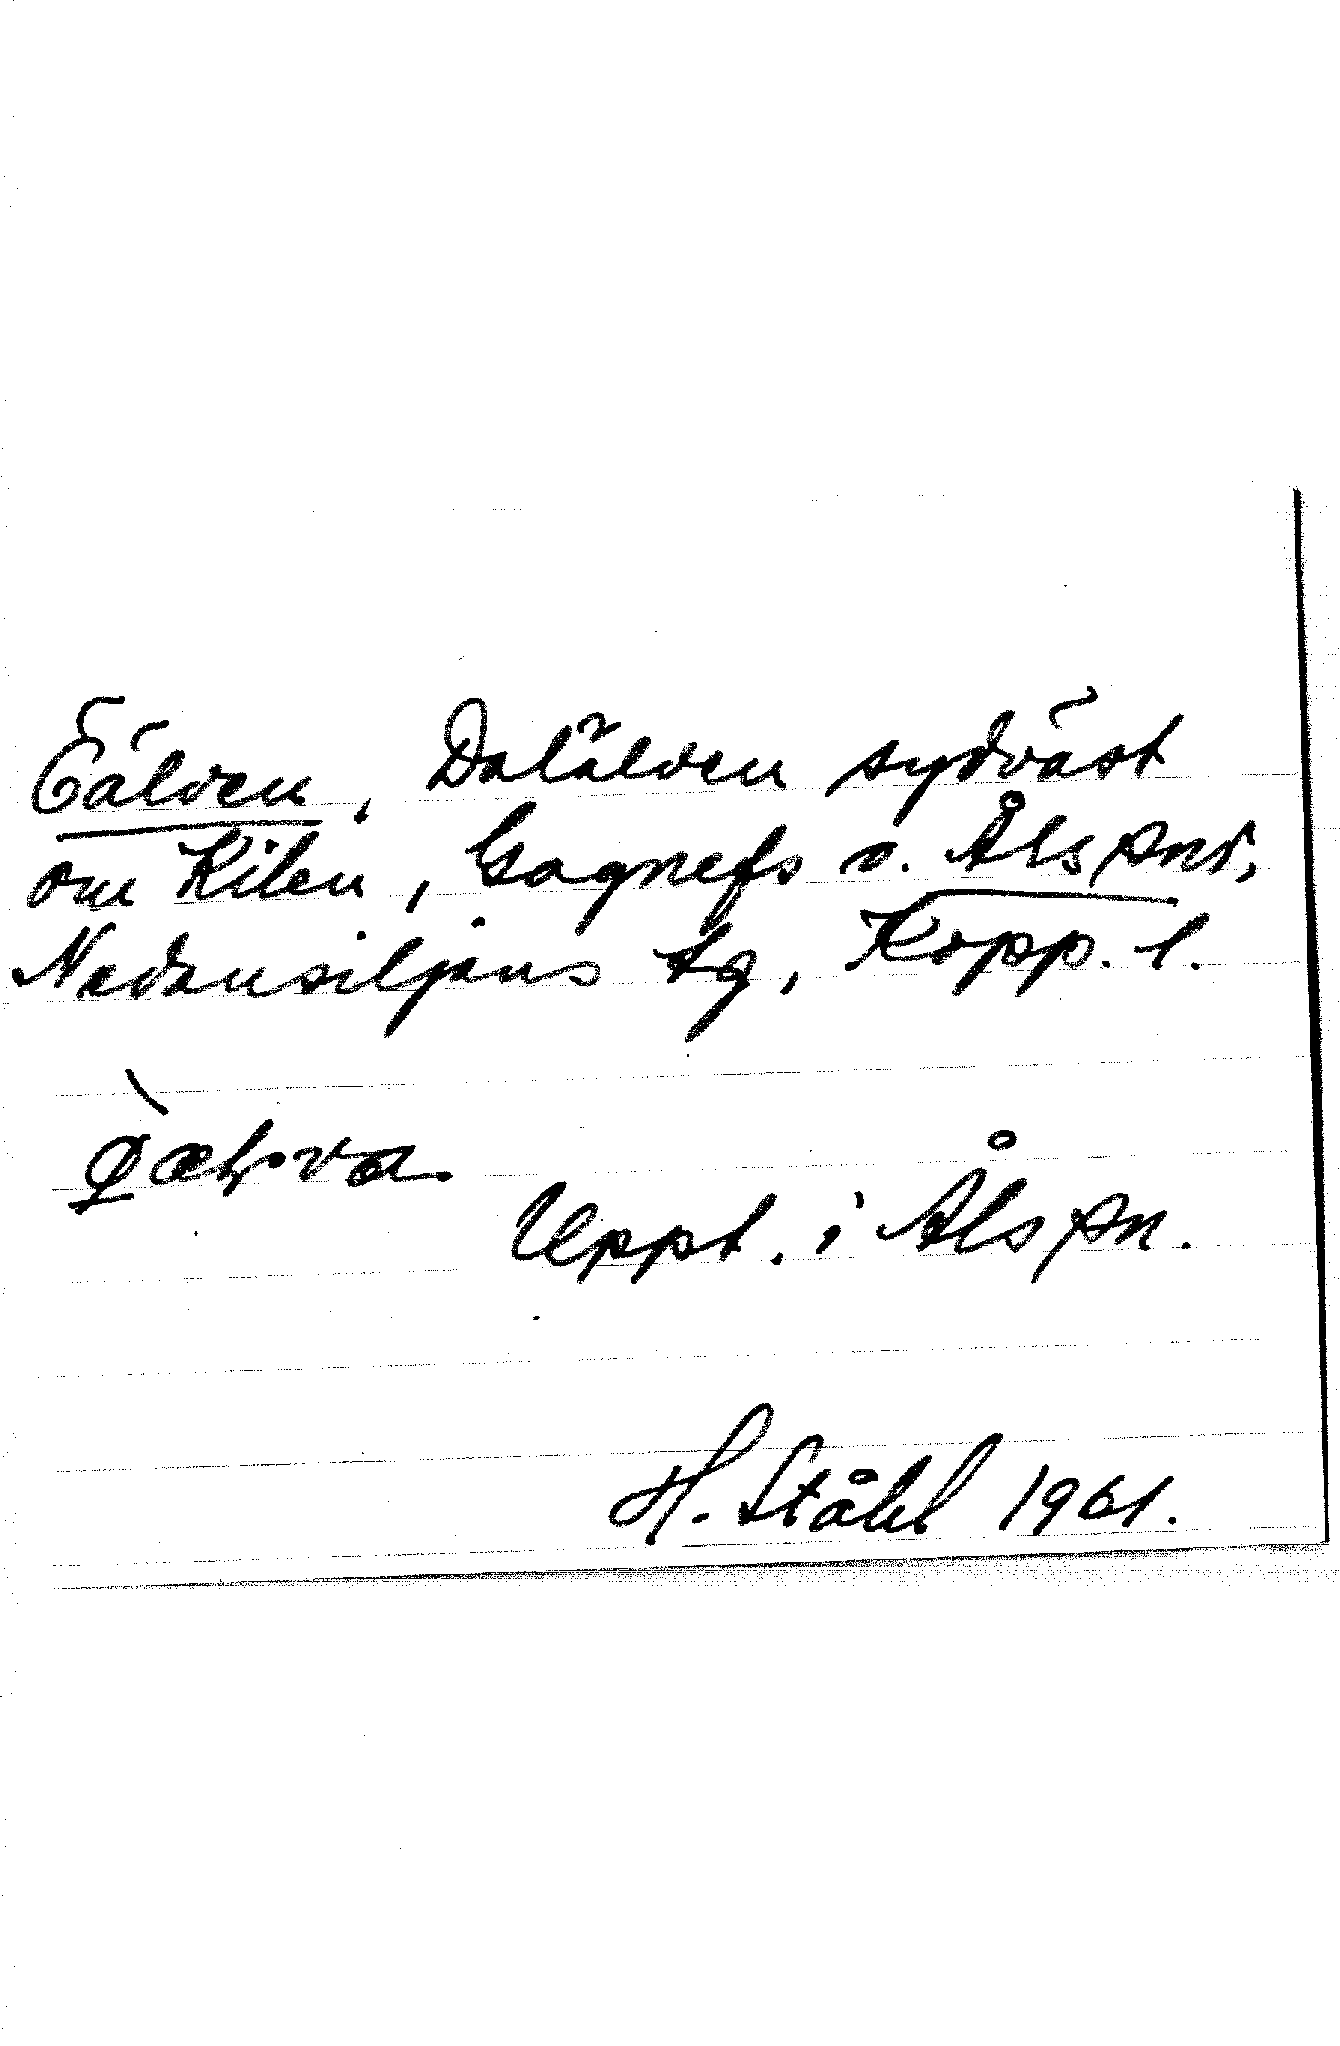 Öälven, Dalälven sydväst
om Kilen, Gagnefs o. Åls snr,
Nedansiljans tg, Kopp. l.
Uppt. i Åls sn.
H. Ståhl 1961.